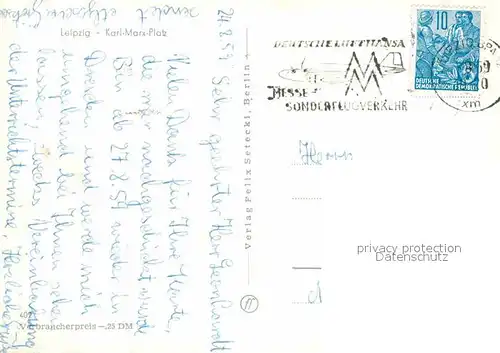 Leipzig - Karl-Marx-Platz
24.8.59
Sehr geehrter Herr Leonhardt
Vielen Dank für Ihre Karte,
die mir nachgeschickt wurde.
Bin ab 27.8.59 wieder in
Dresden und werde mich
umgehend bei Ihnen sehen
lassen zwecks Vereinbarung
der Unterrichtstermine. Herzlichst
sendet
DEUTSCHE LUFTHANSA
MM
MESSE-
SONDERFLUGVERKEHR
10
DEUTSCHE
DEMOKRATISCHE REPUBLIK
Verlag Felix Setecki, Berlin
Herrn
privacy protection
ansichtskarten-lexikon.de
Verbraucherpreis -,25 DM